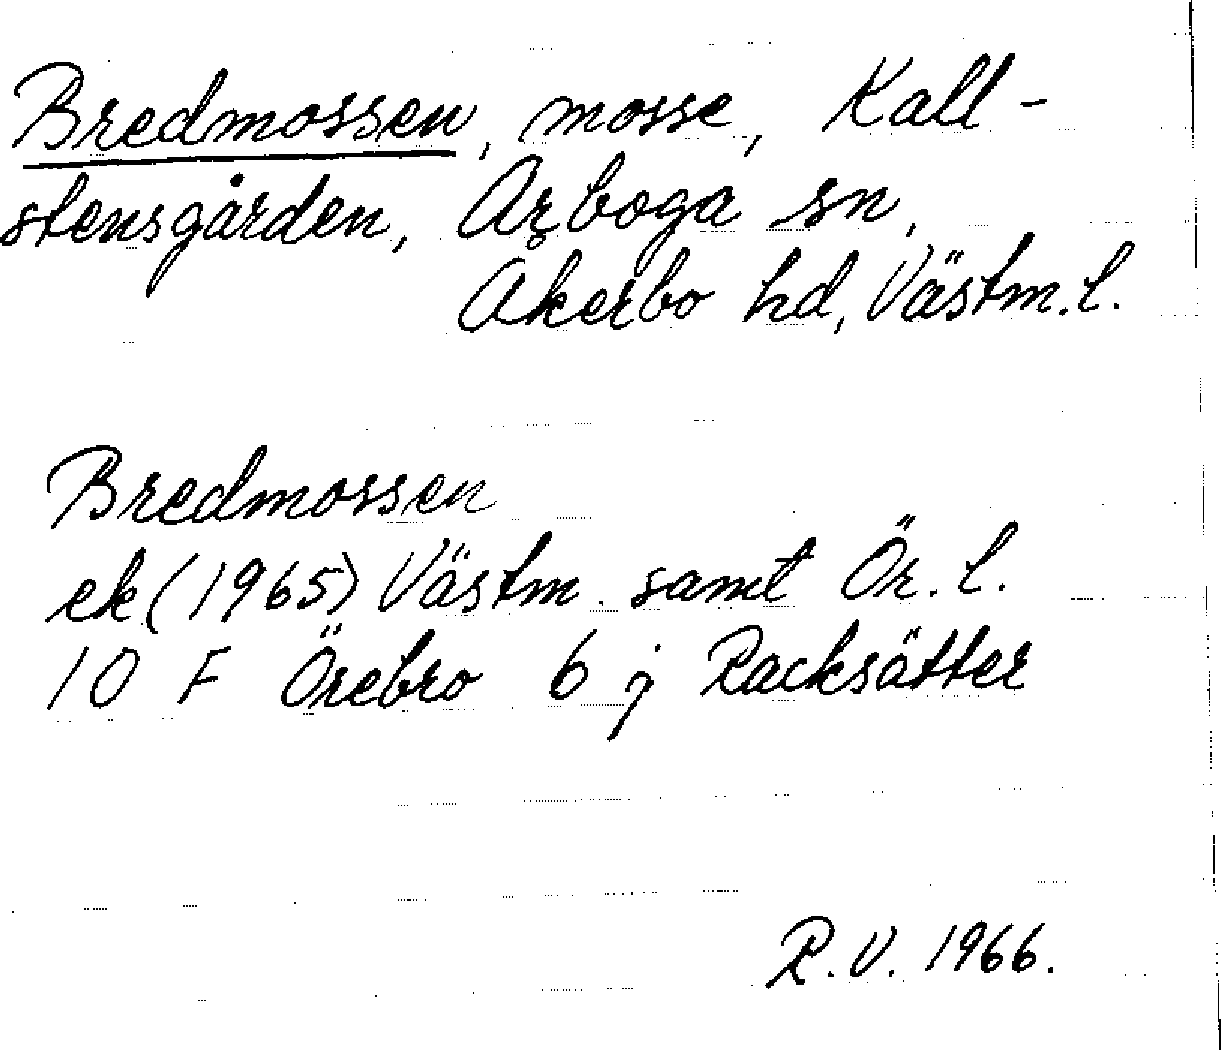 Bredmossen, mosse, Kall-
stensgården, Arboga sn,
Akerbo hd, Västm. l.
Bredmossen
ek (1965) Västm. samt Ör. l.
10 F Örebro 6 j Racksätter
R.V. 1966.